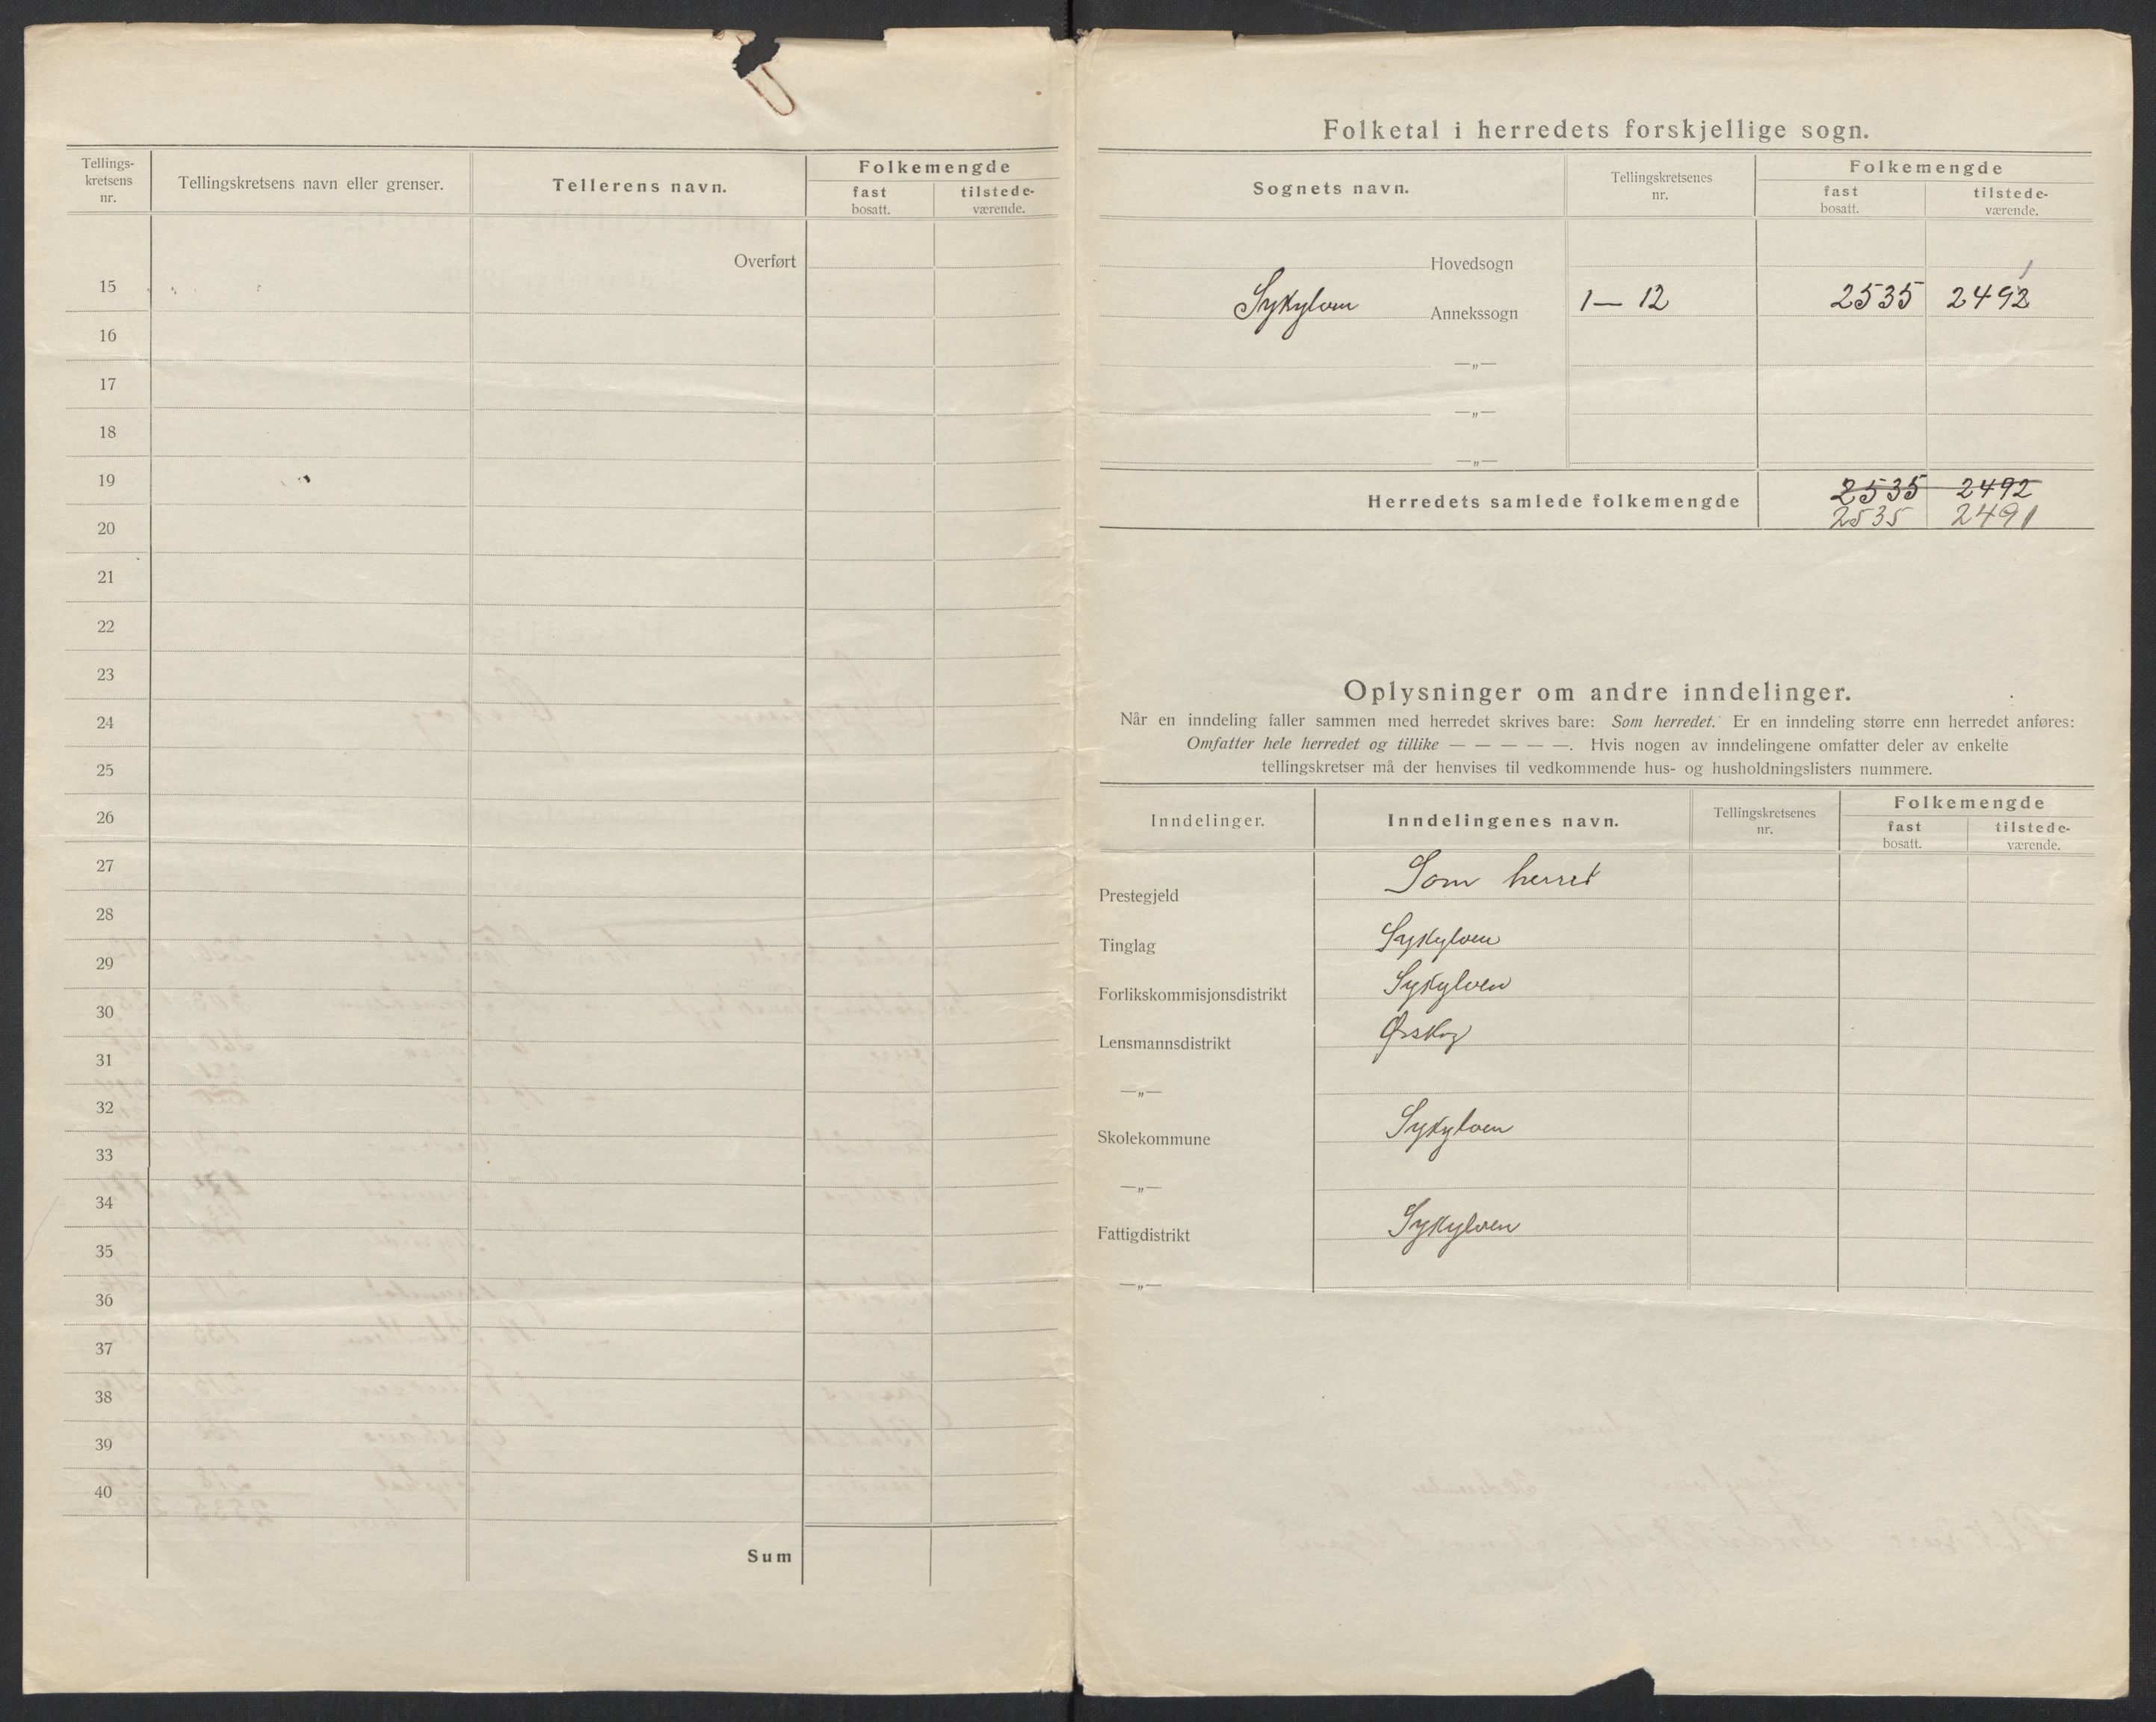 Tellings-
kretsens
nr.
Tellingskretsens navn eller grenser.
Tellerens navn.
Folkemengde
fast
bosatt.
tilstede-
værende.
Overført
15
16
17
18
19
20
21
22
23
24
25
26
27
28
29
30
31
32
33
34
35
36
37
38
39
40
Sum
Folketal i herredets forskjellige sogn.
Sognets navn.
Tellingskretsenes
nr.
Folkemengde
fast
bosatt.
tilstede-
værende.
Hovedsogn
1
Sykylven Annekssogn 1 — 12 2535 2492
—„—
—„—
—„—
Herredets samlede folkemengde 2535 2492
2535 2491
Oplysninger om andre inndelinger.
Når en inndeling faller sammen med herredet skrives bare: Som herredet. Er en inndeling større enn herredet anføres:
Omfatter hele herredet og tillike — — — — —. Hvis nogen av inndelingene omfatter deler av enkelte
tellingskretser må der henvises til vedkommende hus- og husholdningslisters nummere.
Inndelinger.
Inndelingenes navn.
Tellingskretsenes
nr.
Folkemengde
fast
bosatt.
tilstede-
værende.
Prestegjeld Som herret
Tinglag Sykylven
Forlikskommisjonsdistrikt Sykylven
Lensmannsdistrikt Ørskog
—„—
Skolekommune Sykylven
—„—
Fattigdistrikt Sykylven
—„—